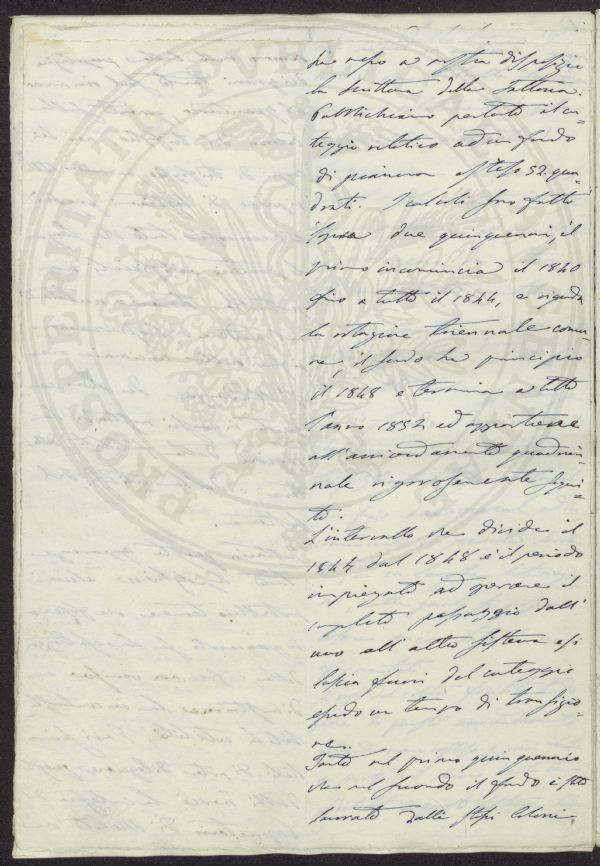 ha reso a nostra disposizione
la scrittura della Fattoria.
Pubblichiamo pertanto il con=
teggio relativo ad un fondo
di pianura esteso 52. qua=
drati. I calcoli sono fatti
sopra due quinquenni, il
primo incomincia il 1840
fino a tutto il 1844, e riguarda
la rotazione triennale comu=
ne, il secondo ha principio
il 1848 e termina a tutto
l'anno 1852 ed appartiene
all'avvicendamento quadrien=
nale rigorosamente segui=
to.
L'intervallo che divide il
1844 dal 1848 è il periodo
impiegato ad operare il
completo passaggio dall'
uno all'altro sistema e si
lascia fuori del conteggio
essendo un tempo di transizio=
ne.
Tanto nel primo quinquennio
che nel secondo il fondo è stato
lavorato dalli stessi Coloni
PROSPERITÀ PUBBLICA